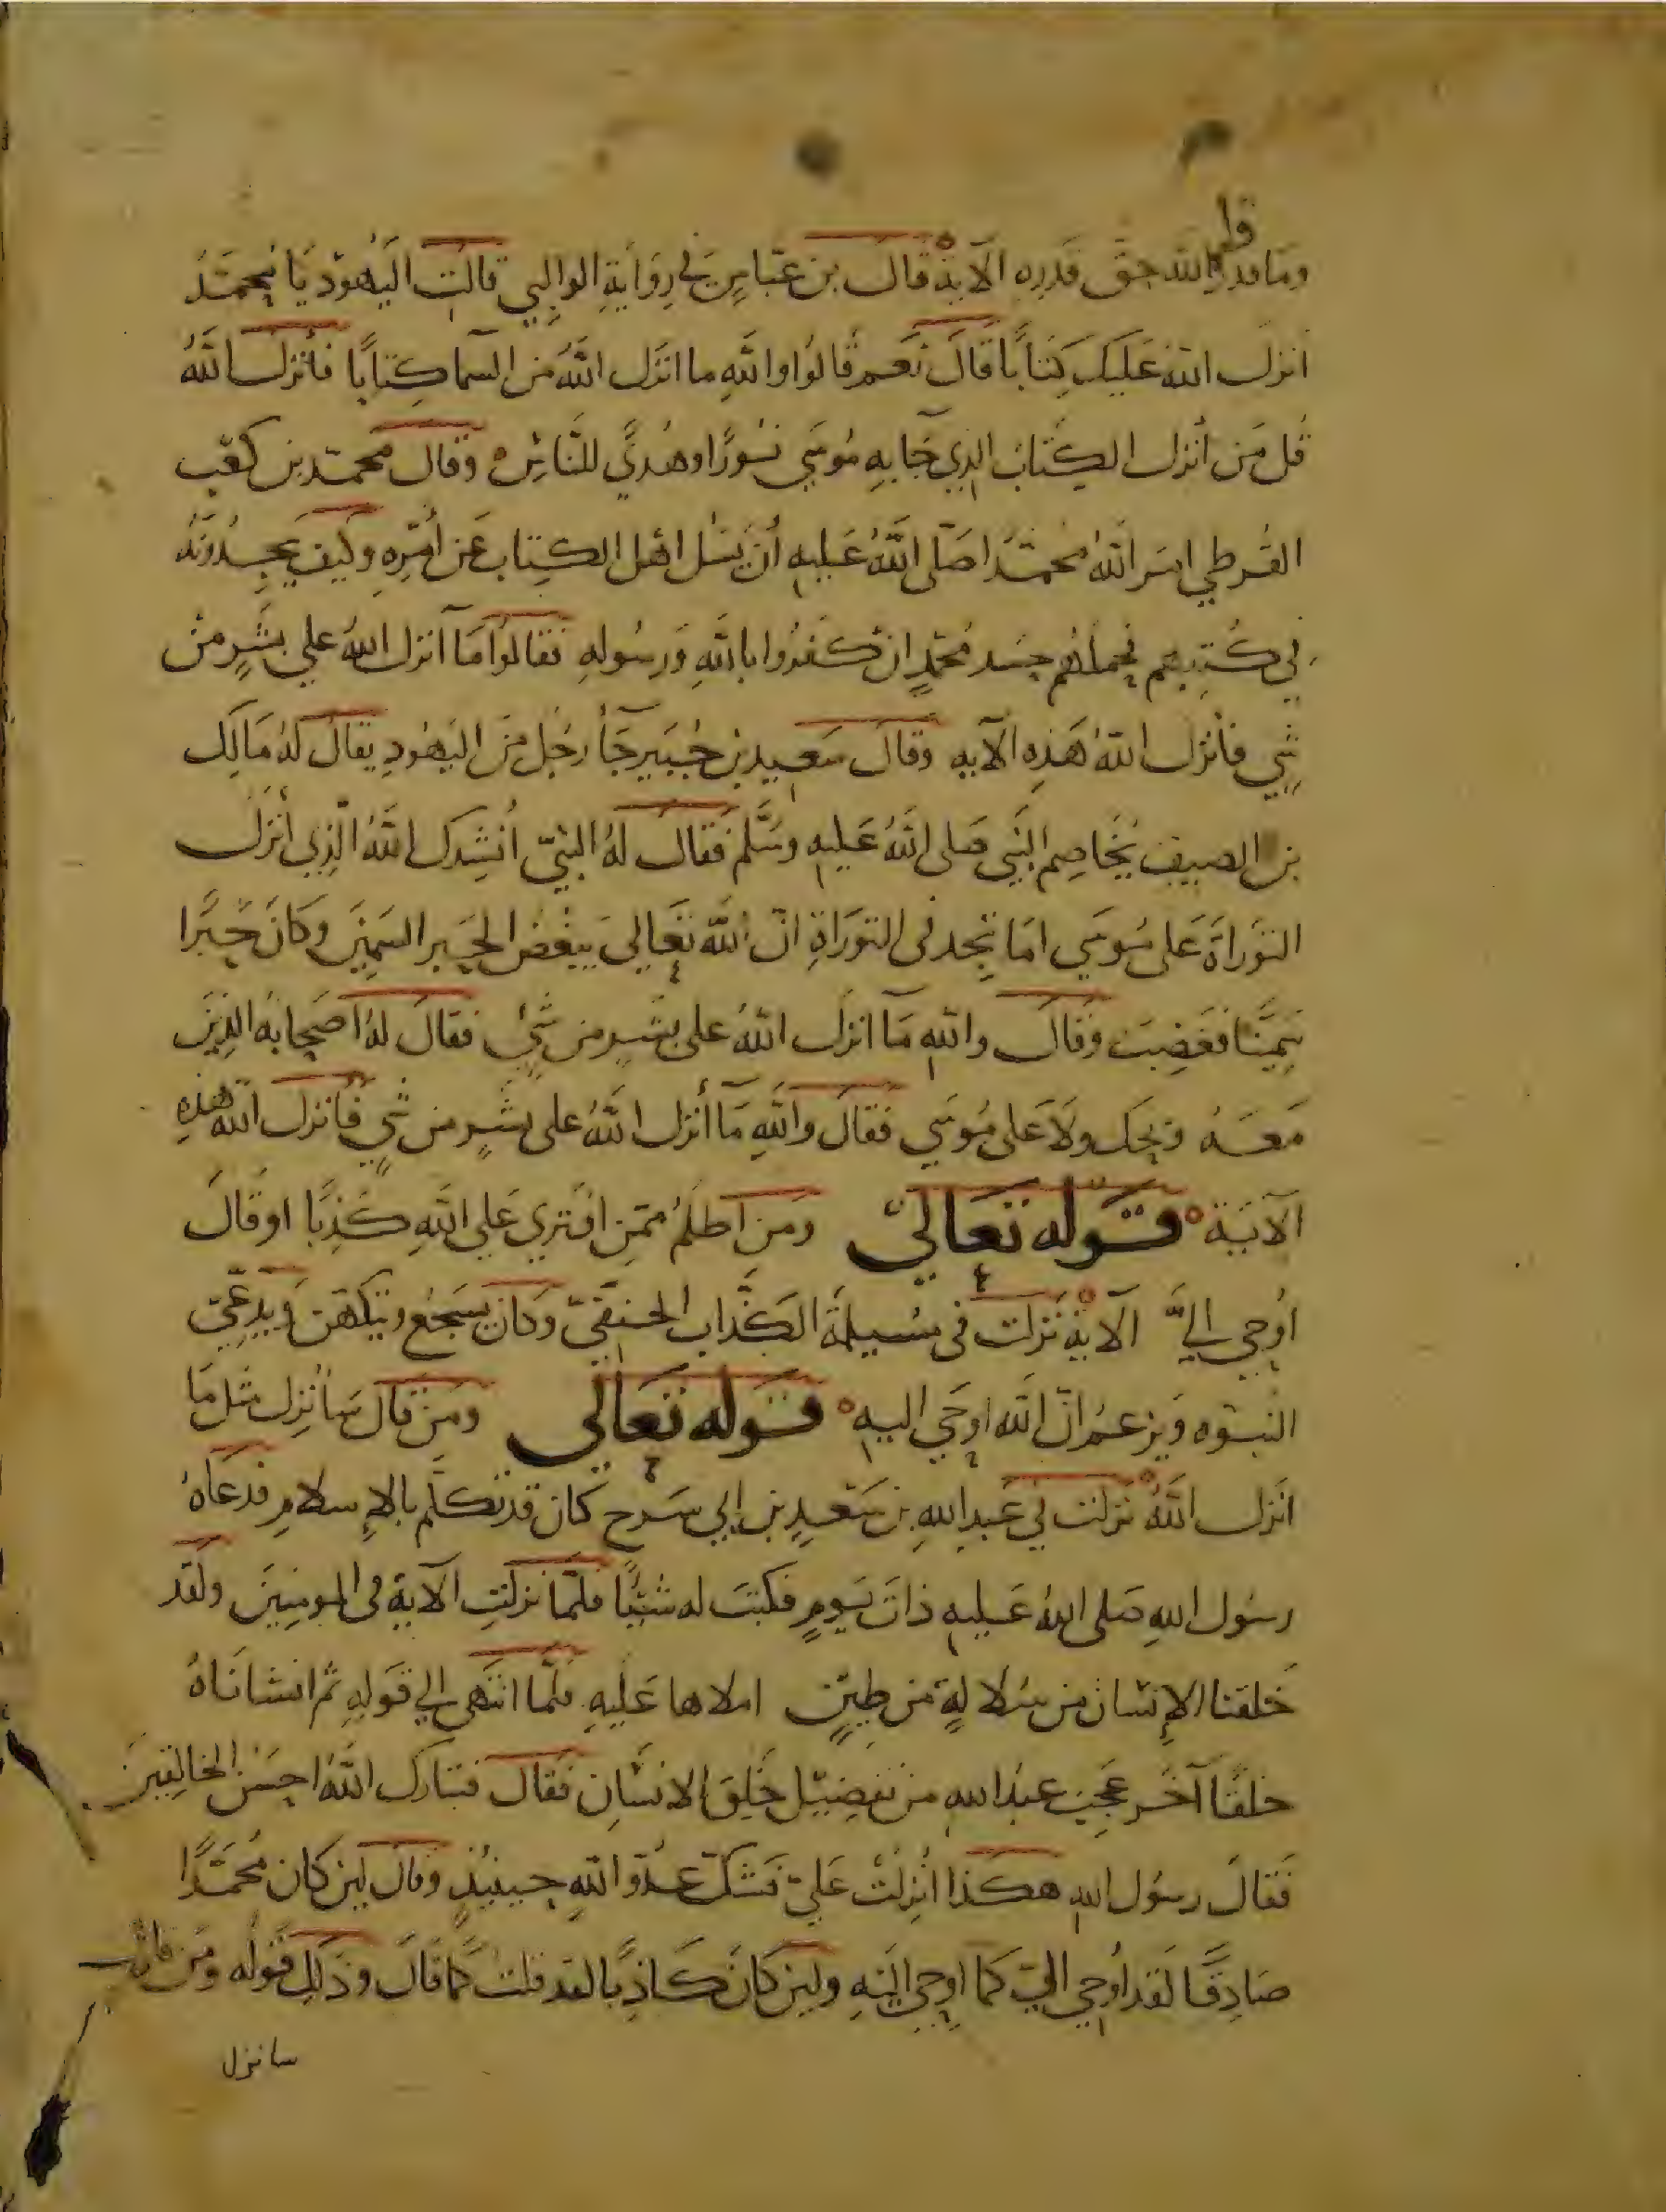 وما قدروا الله حق قدره الآية قال بن عباس في رواية الوالبي قالت اليهود يا محمد
أنزل الله عليك كتابا قال نعم قالوا والله ما انزل الله من السما كتابا فأنزل الله
قل من أنزل الكتاب الذي جا به موسى نورا وهدى للناس وقال محمد بن كعب
القرطي امر الله محمدا صلى الله عليه أن يسل اهل الكتاب عن أمره وكيف يجدونه
في كتبهم فحملهم حسد محمد ان كفروا بالله ورسوله فقالوا ما أنزل الله على بشر من
شي فأنزل الله هذه الآيه وقال سعيد بن جبير جأ رجل من اليهود يقال له مالك
بن الصيف يخاصم النبي صلى الله عليه وسلم فقال له النبي أنشدك الله الذي أنزل
التوراة على موسى اما تجد في التوراة ان الله تعالى يبغض الحبر السمين وكان حبرا
سمينا فغضب وقال والله ما انزل الله على بشر من شيء فقال له اصحابه الذين
معه ويحك ولا على موسى فقال والله ما أنزل الله على بشر من شي فأنزل الله هذه
الآية قوله تعالى ومن اظلم ممن افترى على الله كذبا او قال
أوحي إلي الآية نزلت في مسيلمة الكذاب الحنفي وكان يسجع ويتكهن ويدعي
النبوه ويزعم ان الله اوحى اليه قوله تعالى ومن قال سأنزل مثل ما
انزل الله نزلت في عبد الله بن سعد بن ابي سرح كان قد تكلم بالإسلام فدعاه
رسول الله صلى الله عليه ذات يوم فكتب له شيئا فلما نزلت الآية في المومنين ولقد
خلقنا الإنسان من سلالة من طين املاها عليه فلما انتهى إلى قوله ثم انشاناه
خلقا آخر عجب عبد الله من تفضيل خلق الانسان فقال فتبارك الله احسن الخالقين
فقال رسول الله هكذا أنزلت علي فشك عدو الله حينئذ وقال لين كان محمدا
صادقا لقد أوحي الي كما اوحي اليه ولين كان كاذبا لقد قلت كما قال وذلك قوله ومن قال
سانزل